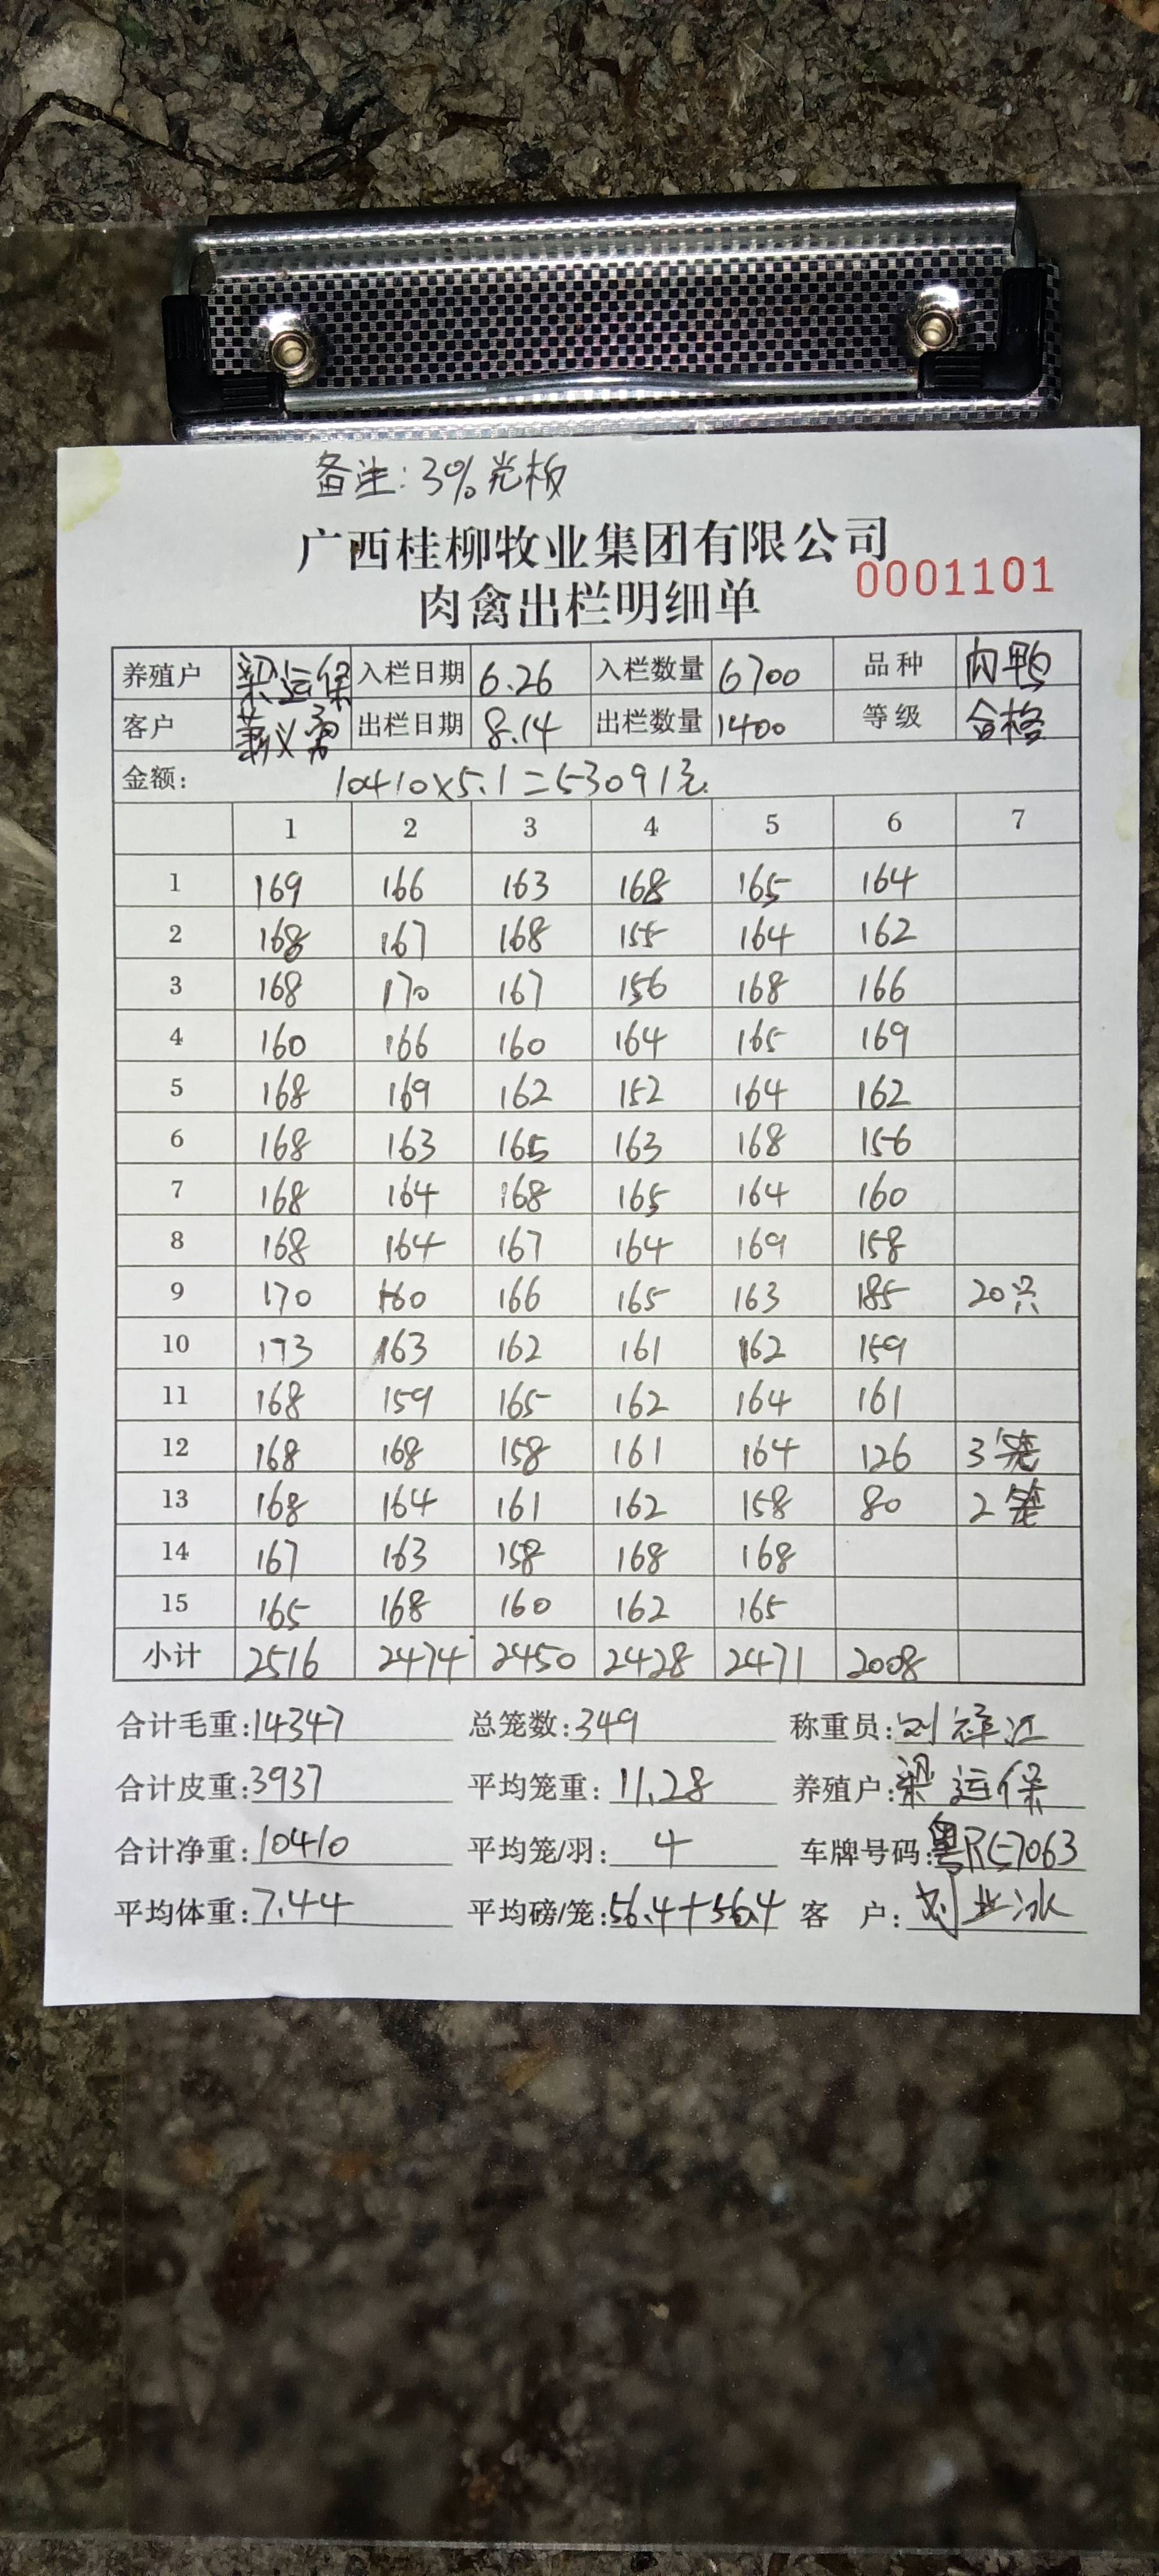 备注:3%光板
广西桂柳牧业集团有限公司
0001101
肉禽出栏明细单
养殖户 梁运保 入栏日期 6.26 入栏数量 6700 品种 肉鸭
客户 义勇 出栏日期 8.14 出栏数量 1400 等级 合格
金额: 10410×5.1=53091元
1 2 3 4 5 6 7
1 169 166 163 168 165 164
2 168 167 168 155 164 162
3 168 170 167 156 168 166
4 160 166 160 164 165 169
5 168 169 162 152 164 162
6 168 163 165 163 168 156
7 168 164 168 165 164 160
8 168 164 167 164 169 158
9 170 160 166 165 163 185 20只
10 173 163 162 161 162 159
11 168 159 165 162 164 161
12 168 168 158 161 164 126 3笼
13 168 164 161 162 158 80 2笼
14 167 163 158 168 168
15 165 168 160 162 165
小计 2516 2474 2450 2428 2471 2008
合计毛重:14347 总笼数:349 称重员:刘祥江
合计皮重:3937 平均笼重:11.28 养殖户:梁运保
合计净重:10410 平均笼/羽:4 车牌号码:粤RE7063
平均体重:7.44 平均磅/笼:56.4+56.4 客 户:刘业冰